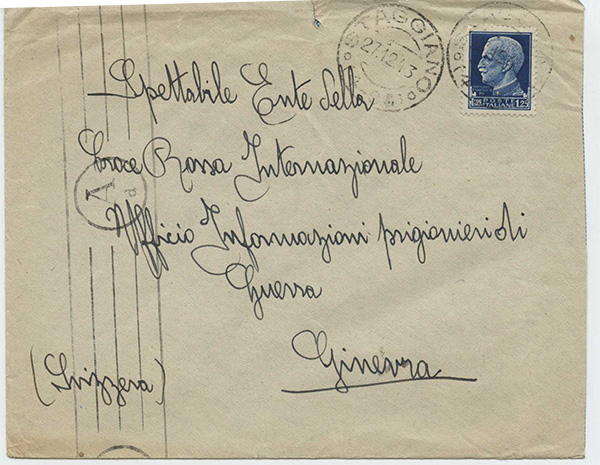 STAGGIANO
27.12.43
1,25
Spettabile Ente della
Croce Rossa Internazionale
A
d
Ufficio Informazioni prigionieri di
Guerra
Ginevra
(Svizzera)